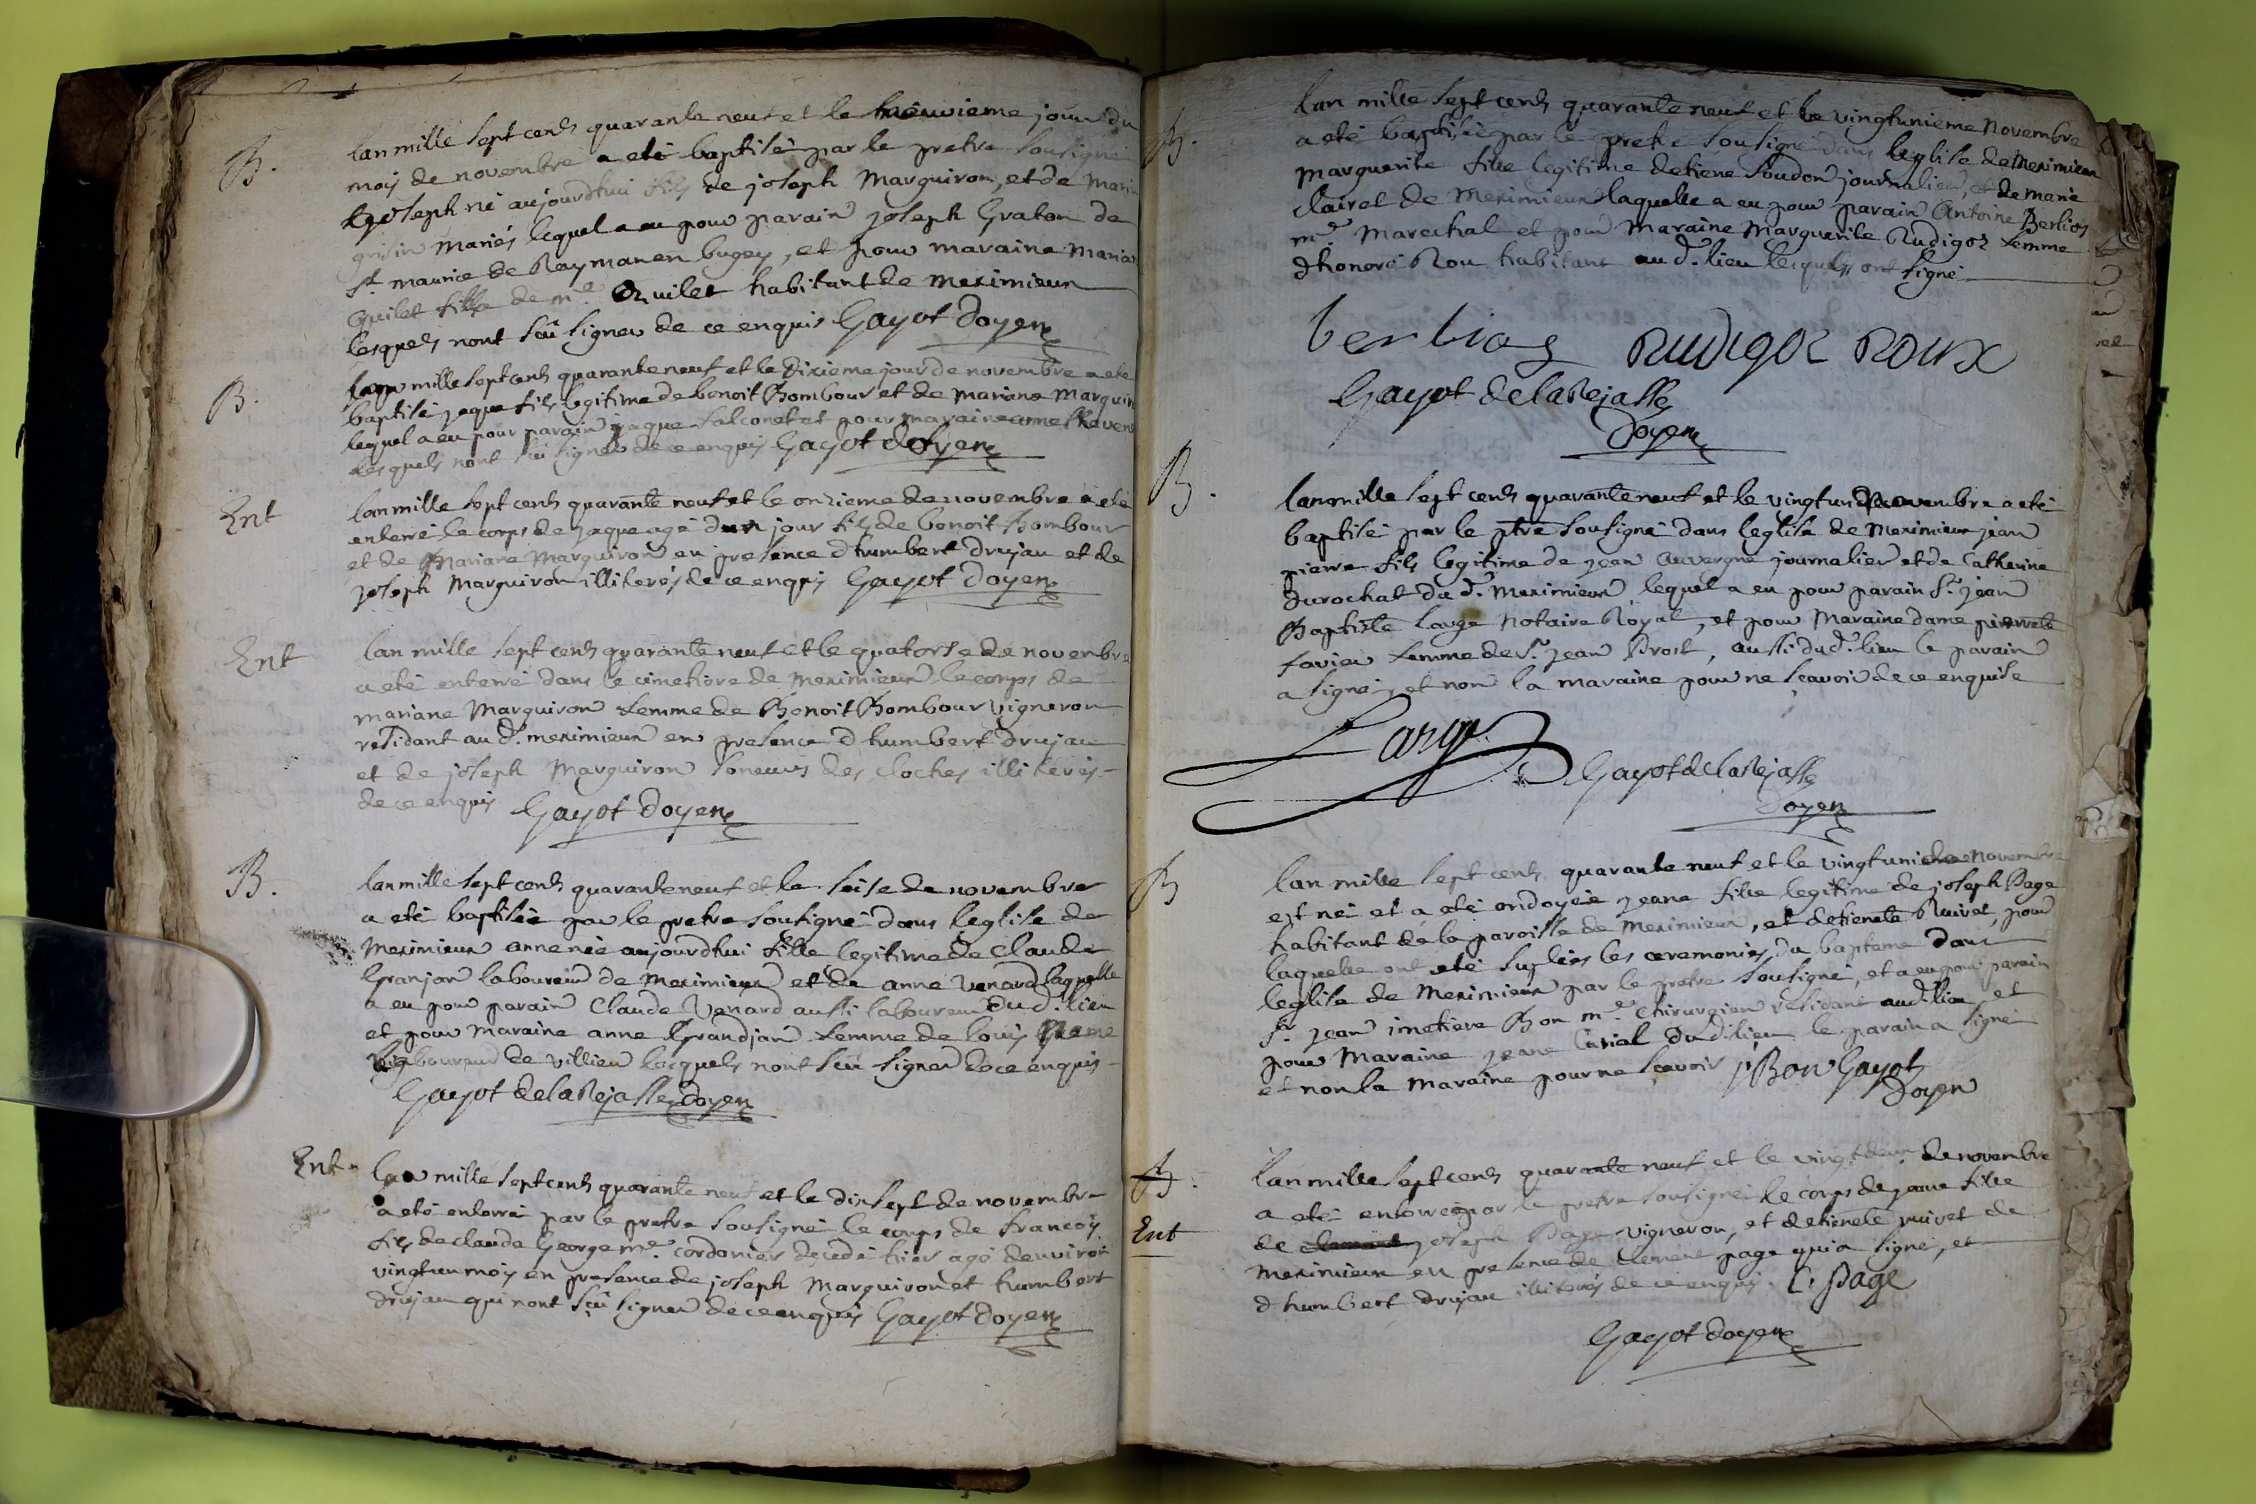 B.
lan mille sept cents quarante neuf et le neuvieme jour du
mois de novembre a eté baptisé par le pretre sousigné
joseph né aujourdhui fils de joseph Marguiron, et de Marie
mariés lequel a eu pour parain joseph Graton de
st. maurice de Reyman en bugey, et pour maraine Mariane
Quilet fille de me. Quilet habitant de Meximieux
lesquels nont sçû signer de ce enquis Gayot Doyen
B.
lan mille sept cents quarante neuf et le dixieme jour de novembre a eté
baptisé jaque fils legitime de benoit Bombour et de Mariane Marguiron
lequel a eu pour parain jaque falconet et pour maraine
lesquels nont sçû signer de ce enquis Gayot doyen
Ent
lan mille sept cents quarante neuf et le onzieme de novembre a eté
enterré le corps de jaque agé dun jour fils de benoit Bombour
et de Mariane Marguiron en presence dhumbert drujau et de
joseph Marguiron illiterés de ce enquis Gayot Doyen
Ent
lan mille sept cents quarante neuf et le quatorse de novembre
a eté enterré dans le cimetiere de Meximieux le corps de
mariane Marguiron femme de Benoit Bombour vigneron
residant au d. meximieux en presence dhumbert drujau
et de joseph Marguiron soneurs des cloches illiterés
de ce enquis Gayot Doyen
B.
lan mille sept cents quarante neuf et le seise de novembre
a eté baptisée par le pretre sousigné dans leglise de
Meximieux anne née aujourdhui fille legitime de Claude
Granjan laboureur de Meximieux et de anne Venard laquelle
a eu pour parain Claude Venard aussi laboureur dud. lieu
et pour maraine anne Grandjan femme de louis
laboureur de villieu lesquels nont sçû signer de ce enquis
Gayot de la Rejasse doyen
Ent
lan mille sept cents quarante neuf et le dix sept de novembre
a eté enterré par le pretre sousigné le corps de francois
fils de claude George me. cordonier decedé hier agé denviron
vingt un mois en presence de joseph Marguiron et humbert
drujau qui nont sçû signer de ce enquis Gayot Doyen
B.
lan mille sept cents quarante neuf et le vingtunieme Novembre
a eté baptisée par le pretre sousigné dans leglise de Meximieux
Marguerite fille legitime detiene Soudon journalier, et de marie
Clairet de Meximieux laquelle a eu pour parain Antoine Berlioz
me. Marechal et pour Maraine Marguerite Rudigoz femme
dhonoré Rou habitant au d. lieu lesquels ont signé
berlioz RUDIGOZ ROUX
Gayot de la Rejasse
Doyen
B.
lan mille sept cents quarante neuf et le vingtun de novembre a eté
baptisé par le ptre sousigné dans leglise de Meximieux jean
pierre fils legitime de jean auvergne journalier et de Catherine
durochat du d. Meximieux lequel a eu pour parain Sr. jean
Baptiste Large Notaire Royal, et pour Maraine dame pierrete
favier femme de Sr. jean Prost, aussi du d. lieu le parain
a signé, et non la maraine pour ne sçavoir de ce enquise
Large
Gayot de la Rejasse
Doyen
B
lan mille sept cents quarante neuf et le vingtunieme Novembre
est née et a eté ondoyée jeane fille legitime de joseph Page
habitant de la paroisse de Meximieux, et detienete Ruivet, pour
laquelle ont eté suplées les ceremonies du bapteme dans
leglise de Meximieux par le pretre sousigné, et a eu pour parain
Sr. jean imetiere Bon me. Chirurgien residant aud. lieu, et
pour Maraine jeane Carial dud. lieu le parain a signé
et non la Maraine pour ne sçavoir jBon Gayot
Doyen
B.
Ent
lan mille sept cents quarante neuf et le vingt deux de novembre
a eté enterrée par le pretre sousigné le corps de jeane fille
de joseph Page vigneron, et detienete ruivet de
Meximieux en presence de clement page qui a signé, et
dhumbert drujau illiterés de ce enquis. C. page
Gayot doyen